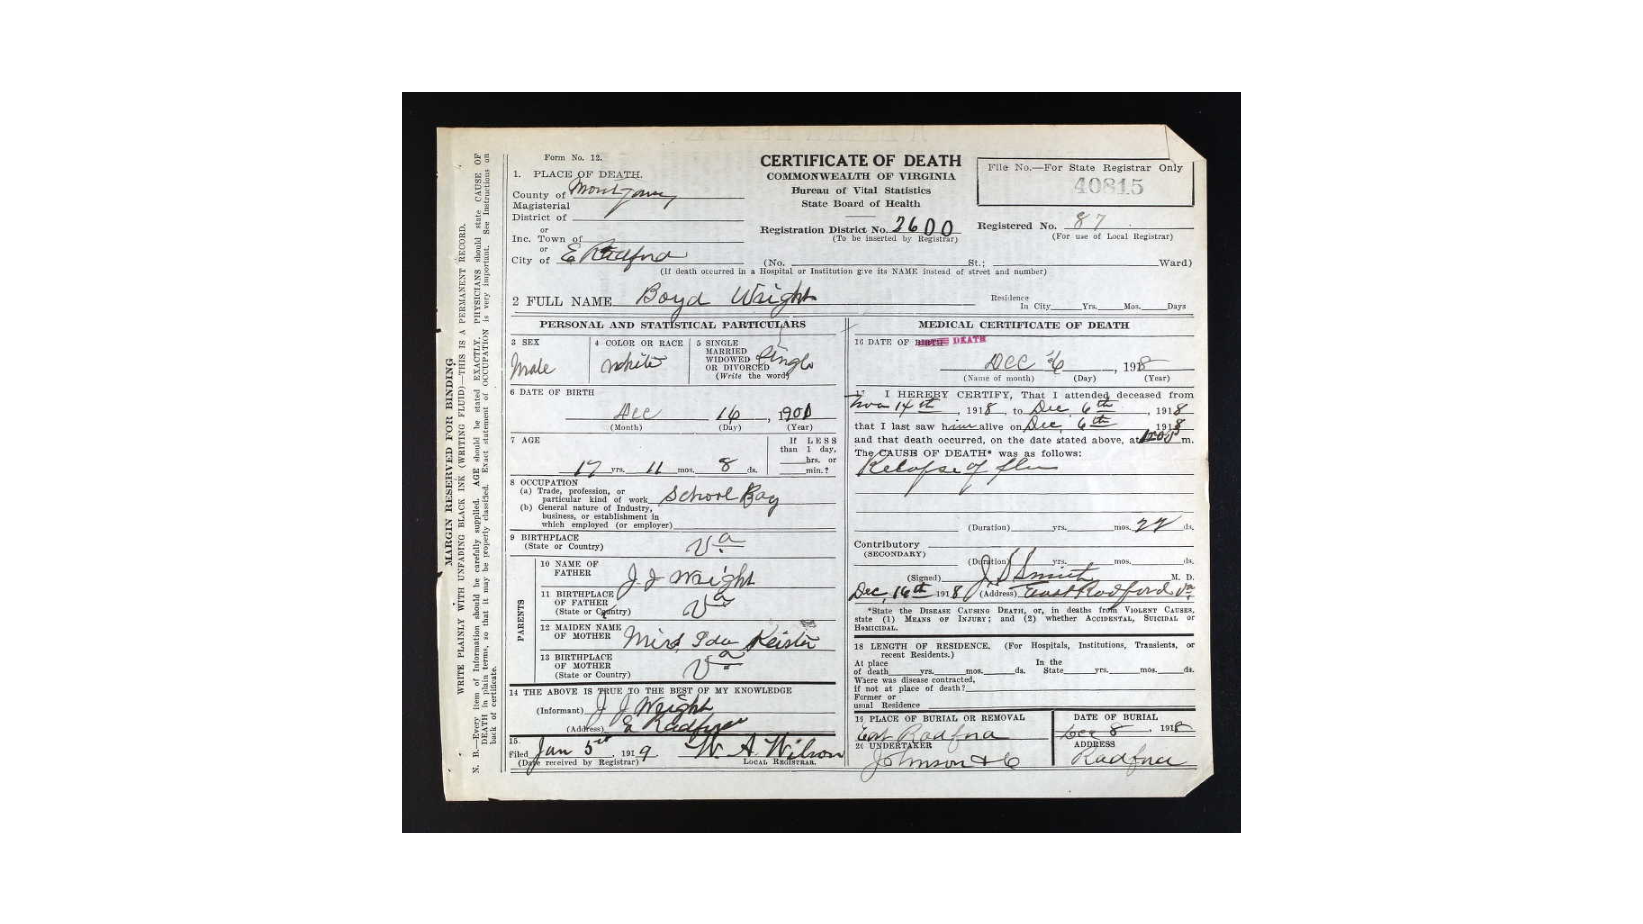 Form No. 12.
CERTIFICATE OF DEATH
COMMONWEALTH OF VIRGINIA
Bureau of Vital Statistics
State Board of Health
File No.—For State Registrar Only
40815
1. PLACE OF DEATH.
County of Montgomery
Magisterial
District of
or
Inc. Town of
or
City of E Radford
Registration District No. 2600
(To be inserted by Registrar)
Registered No. 87
(For use of Local Registrar)
(No. St.; Ward)
(If death occurred in a Hospital or Institution give its NAME instead of street and number)
2 FULL NAME Boyd Wright
Residence
In City Yrs. Mos. Days
PERSONAL AND STATISTICAL PARTICULARS
3 SEX
Male
4 COLOR OR RACE
White
5 SINGLE
MARRIED
WIDOWED
OR DIVORCED
(Write the word)
Single
6 DATE OF BIRTH
Dec 16, 1901
(Month) (Day) (Year)
7 AGE
17 yrs. 11 mos. 8 ds.
If LESS
than 1 day,
hrs. or
min.?
8 OCCUPATION
(a) Trade, profession, or
particular kind of work School Boy
(b) General nature of Industry,
business, or establishment in
which employed (or employer)
9 BIRTHPLACE
(State or Country) Va
PARENTS
10 NAME OF
FATHER J J Wright
11 BIRTHPLACE
OF FATHER
(State or Country) Va
12 MAIDEN NAME
OF MOTHER Miss Ida Keister
13 BIRTHPLACE
OF MOTHER
(State or Country) Va
14 THE ABOVE IS TRUE TO THE BEST OF MY KNOWLEDGE
(Informant) J J Wright
(Address) E Radford
15.
Filed Jan 5th, 1919 W. A. Wilson
(Date received by Registrar) LOCAL REGISTRAR.
MEDICAL CERTIFICATE OF DEATH
16 DATE OF DEATH
Dec 6, 1918
(Name of month) (Day) (Year)
17 I HEREBY CERTIFY, That I attended deceased from
Nov 14th, 1918 to Dec, 6th, 1918
that I last saw him alive on Dec, 6th 1918
and that death occurred, on the date stated above, at m.
The CAUSE OF DEATH* was as follows:
Relapse of flu
(Duration) yrs. mos. 22 ds.
Contributory
(SECONDARY)
(Duration) yrs. mos. ds.
(Signed) J. S. Smith M. D.
Dec, 16th 1918 (Address) East Radford Va
*State the DISEASE CAUSING DEATH, or, in deaths from VIOLENT CAUSES,
state (1) MEANS OF INJURY; and (2) whether ACCIDENTAL, SUICIDAL or
HOMICIDAL.
18 LENGTH OF RESIDENCE. (For Hospitals, Institutions, Transients, or
recent Residents.)
At place In the
of death yrs. mos. ds. State yrs. mos. ds.
Where was disease contracted,
if not at place of death?
Former or
usual Residence
19 PLACE OF BURIAL OR REMOVAL
East Radford
DATE OF BURIAL
Dec 8, 1918
20 UNDERTAKER
Johnson & Co
ADDRESS
Radford
MARGIN RESERVED FOR BINDING
WRITE PLAINLY WITH UNFADING BLACK INK (WRITING FLUID)—THIS IS A PERMANENT RECORD.
N. B.—Every item of Information should be carefully supplied. AGE should be stated EXACTLY. PHYSICIANS should state CAUSE OF
DEATH in plain terms, so that it may be properly classified. Exact statement of OCCUPATION is very important. See Instructions on
back of certificate.